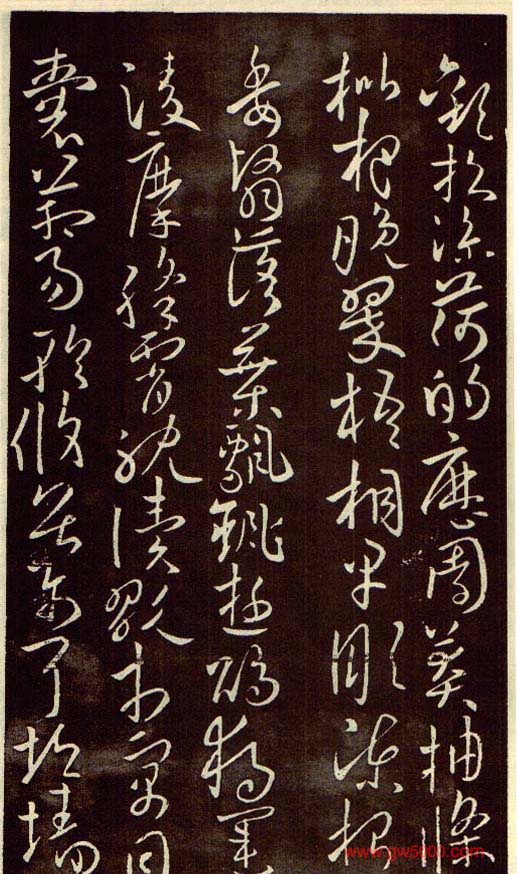 歡招渠荷的歷園莽抽條
枇杷晚翠梧桐早彫陳根
委翳落葉飄颻遊鵾獨運
凌摩絳霄耽讀翫市寓目
囊箱易輶攸畏屬耳垣牆
www.gw5000.com